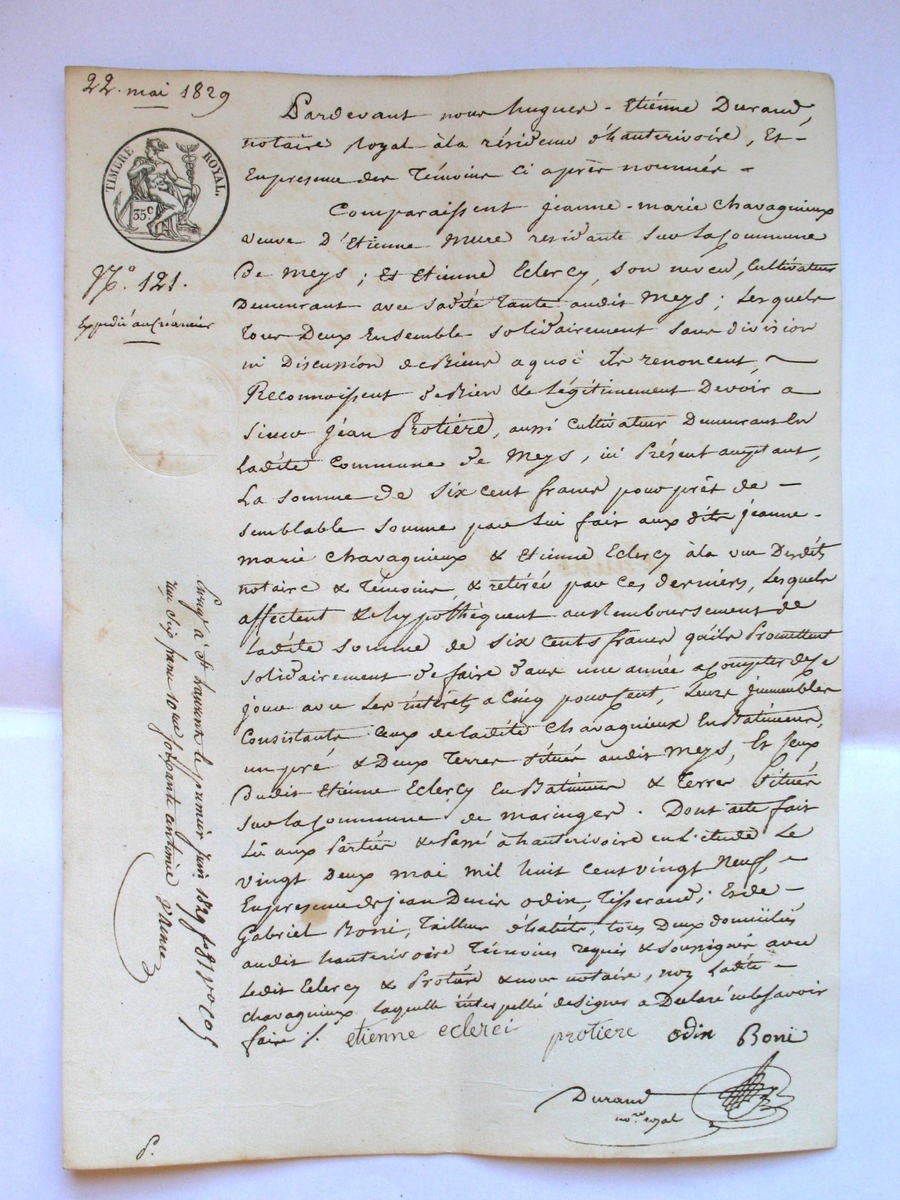 22. mai 1829
TIMBRE ROYAL.
35c
N.° 121.
Expédié au Créancier
Pardevant nous hugues-Etiénne Durand,
notaire royal à la résidence d'hauterivoire, Et
En presence des Témoins ci après nommés
Comparaissent jeanne-marie Chavagnieux
veuve d'Etienne Mure residante sur la Commune
de Meys; Et Etiénne Eclercy, son neveu, Cultivateur
Demeurant avec sadite Tante audit Meys; Lesquels
tous Deux Ensemble solidairement sans division
ni Discussion de Biens a quoi ils renoncent,
Reconnaissent de Bien & Légitimement Devoir a
Sieur Jéan Protière, aussi Cultivateur Demeurant En
Ladite Commune de Meys, ici Présent acceptant,
La somme de six cent francs pour prêt de
semblable somme par Lui fait aux dits jeanne-
marie Chavagnieux & Etienne Eclercy à la vue Desdits
notaire & Témoins, & retirée par ces derniers, Lesquels
affectent & hypothèquent au Remboursement de
Ladite somme de six cents francs qu'ils Promettent
solidairement de faire dans une année a compter de ce
jour avec Les intérêts a Cinq pour Cent, Leurs jmmeubles
Consistants Ceux de Ladite Chavagnieux En Batiments,
un pré & Deux Terres situés audit Meys, Et Ceux
Dudit Etienne Eclercy En Batiments & Terres Situés
sur La Commune de maringes. Dont acte fait
Lu aux Parties & Passé à hauterivoire en L'étude Le
vingt Deux mai Mil huit Cent vingt Neuf,
En presence de jean Denis Odin, Tisserand; Et de
Gabriel Boni, Tailleur d'habits, tous Deux domiciliés
audit hauterivoire Témoins requis & soussignés avec
Ledit Eclercy & Protière & nous notaire, non Ladite
chavagnieux Laquelle interpellée de signer a Déclaré ne le savoir
faire /.
etienne eclerci protiere odin Boni
Durand
no.re royal
Enregé à St Laurent le premier juin 1829 fo 81 vo Co 9
reçu six francs 10me soixante centimes